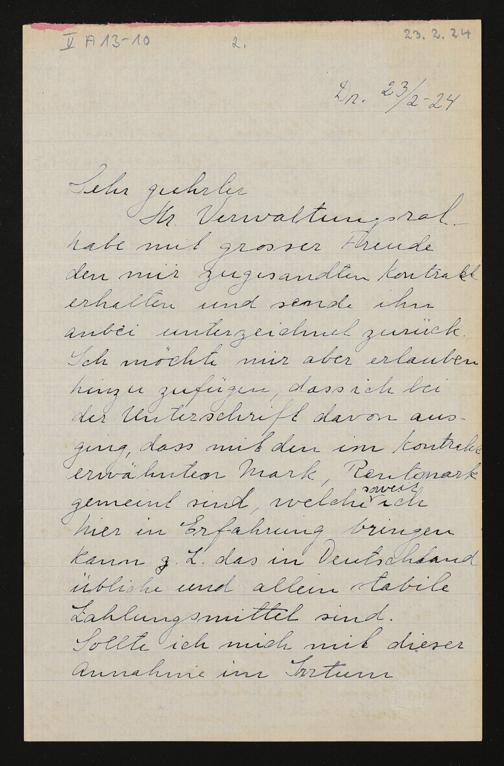 V A 13-10 2. 23.2.24
Dr. 23/2-24
Sehr geehrter
Hr. Verwaltungsrat
habe mit grosser Freude
den mir zugesandten Kontrakt
erhalten und sende ihn
anbei unterzeichnet zurück.
Ich möchte mir aber erlauben
hinzu zufügen, dass ich bei
der Unterschrift davon aus-
ging, dass mit den im Kontrakt
erwähnten Mark, Rentmark
gemeint sind, welche soweit ich
hier in Erfahrung bringen
kann z. Z. das in Deutschland
übliche und allein stabile
Zahlungsmittel sind.
Sollte ich mich mit dieser
Annahme im Irrtum